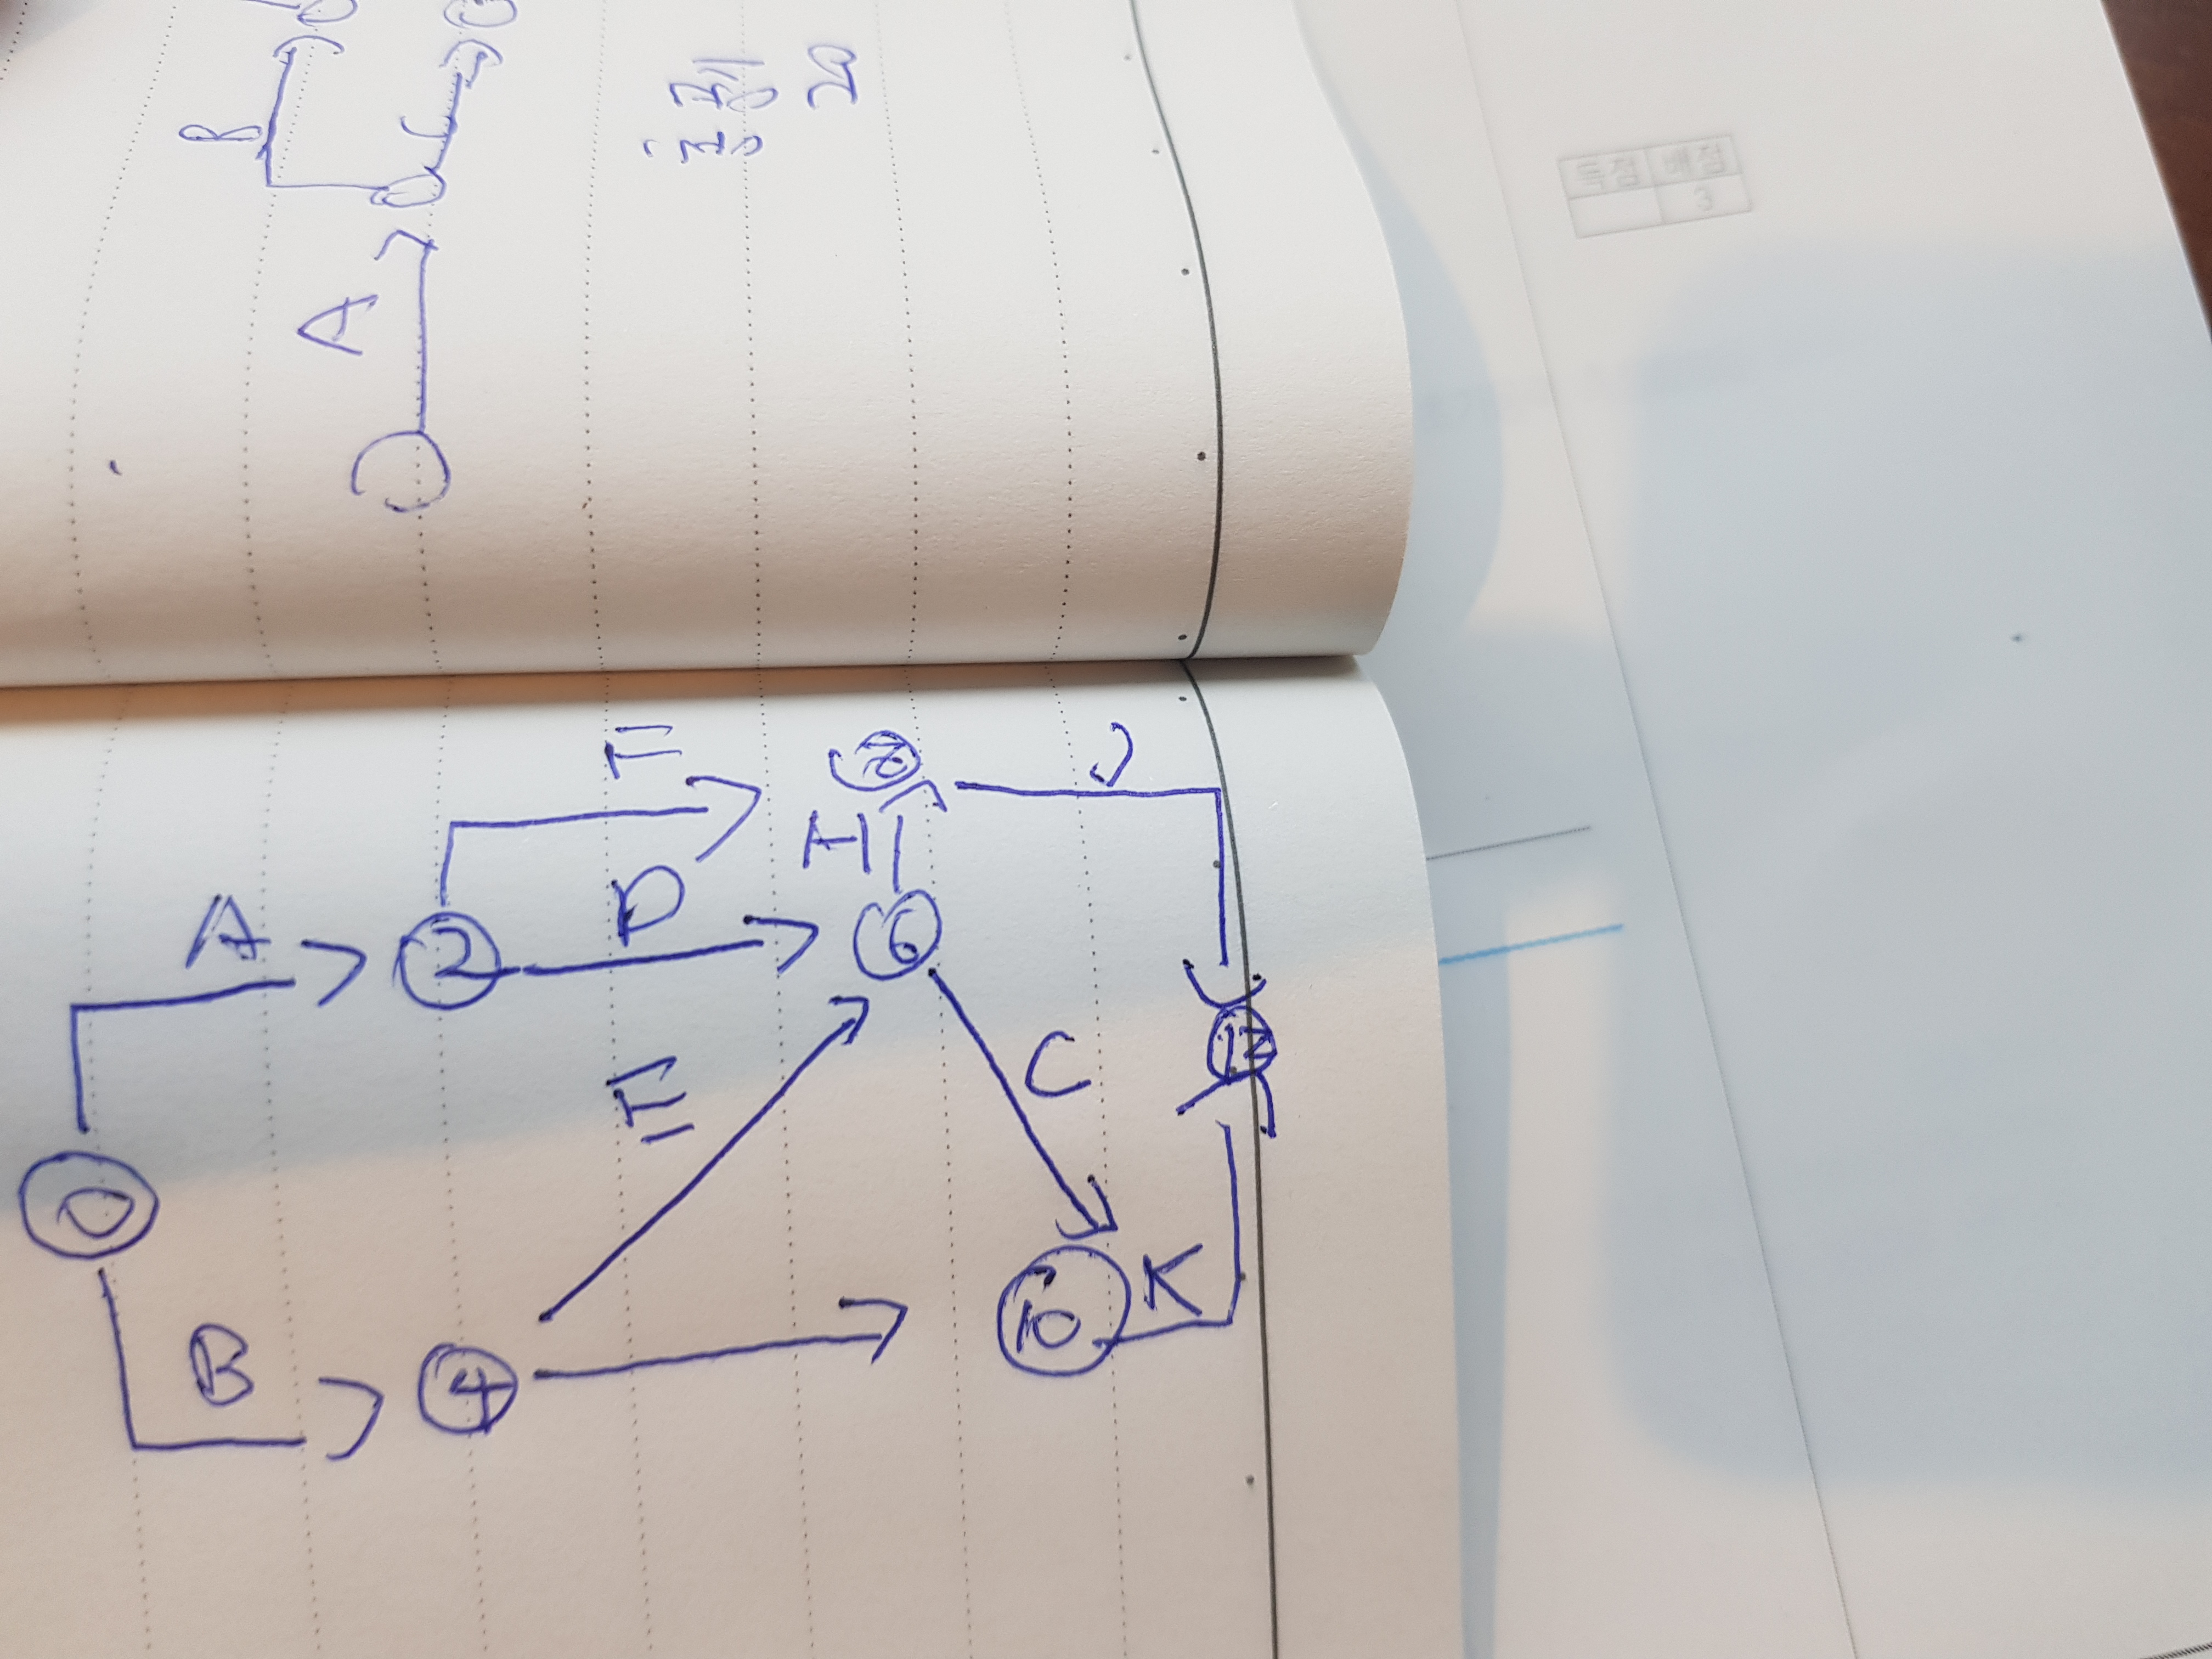 공정
20
A
B
C
득점 배점
3
F
8
J
A
2
D
H
6
E
C
12
0
B
4
10
K